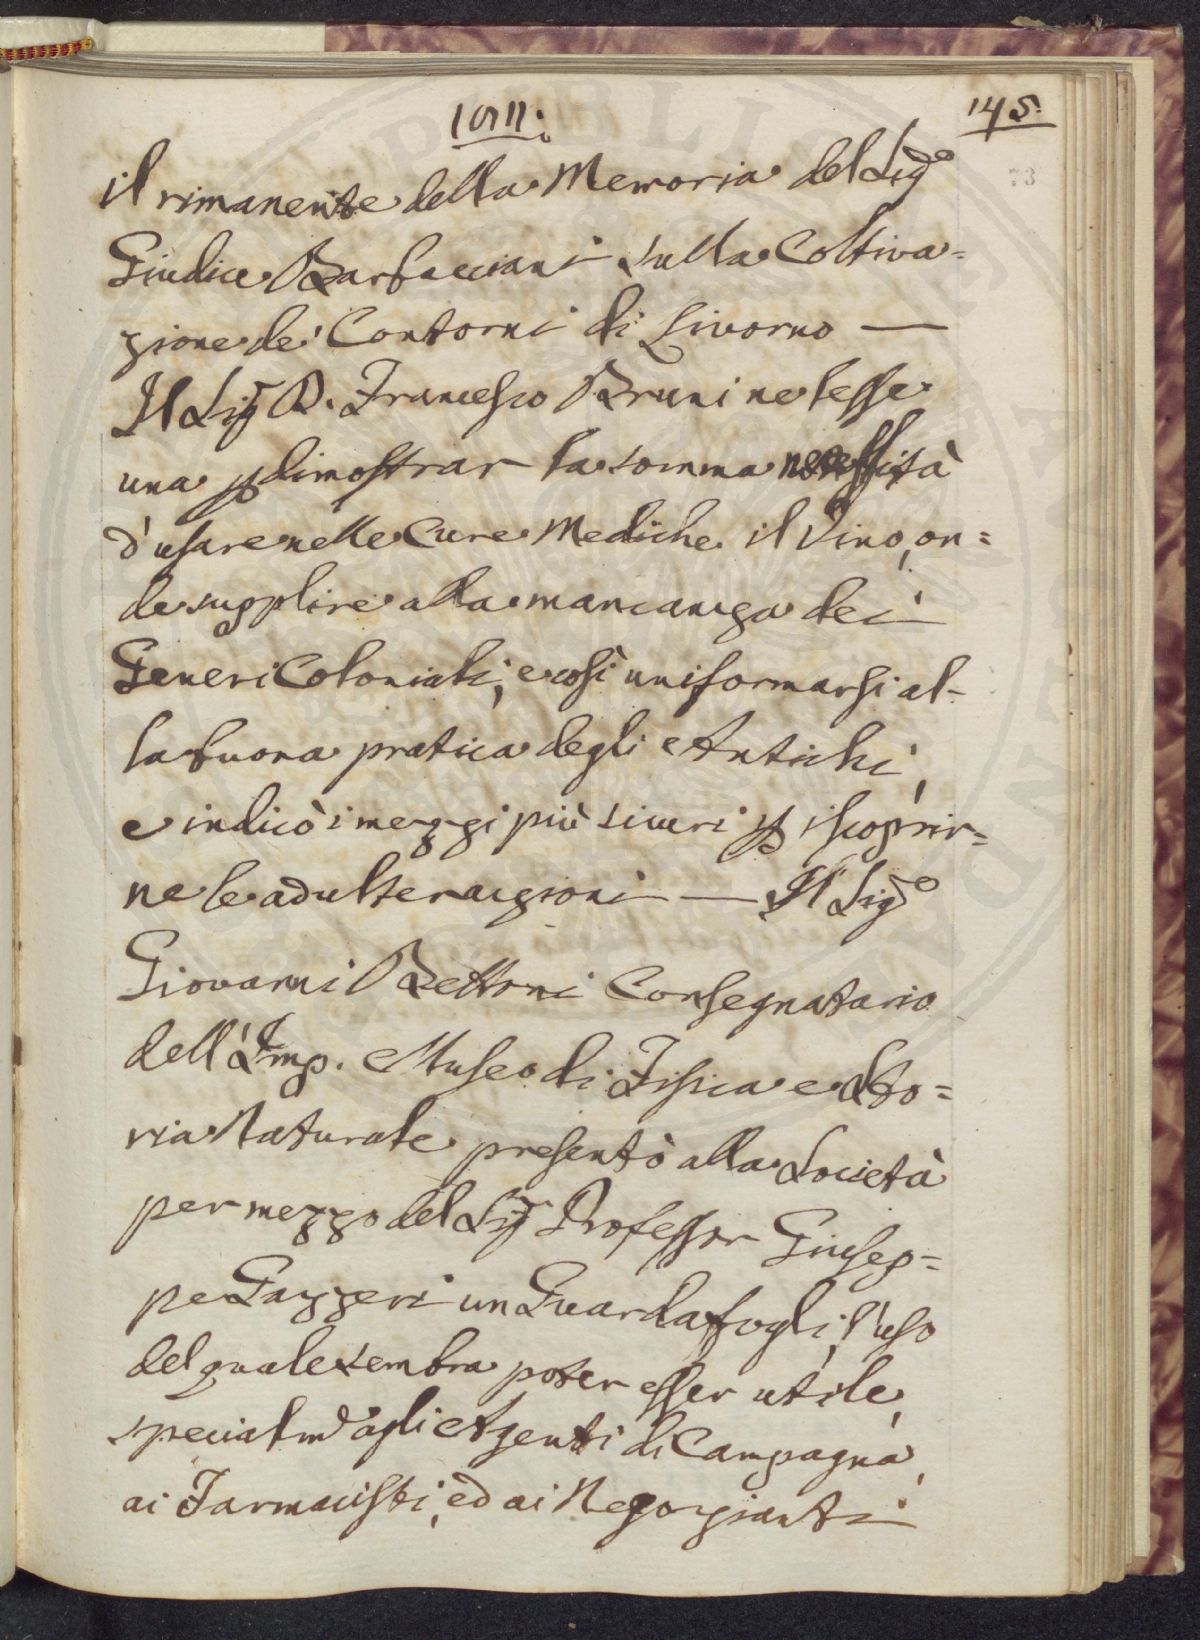 1811.
145.
73
il rimanente della Memoria del Sig.º
Giudice Barbacciani sulla Coltiva=
zione de' Contorni di Livorno —
Il Sig. D. Francesco Bruni ne lesse
una p dimostrar la somma necessità
d'usare nelle Cure Mediche il Vino, on=
de supplire alla mancanza dei
Generi Coloniali, e così uniformarsi al-
la buona pratica degli Antichi,
e indicò i mezzi più sicuri p iscoprir=
ne le adulterazioni — Il Sig.º
Giovanni Bettoni Consegnatario
dell'Imp. Museo di Fisica e Sto=
ria Naturale presentò alla Società
per mezzo del Sig. Professor Giusep=
pe Gazzeri un Guardafogli, l'uso
del quale sembra poter esser utile,
specialm.e agli Agenti di Campagna,
ai Farmacisti, ed ai Negozianti